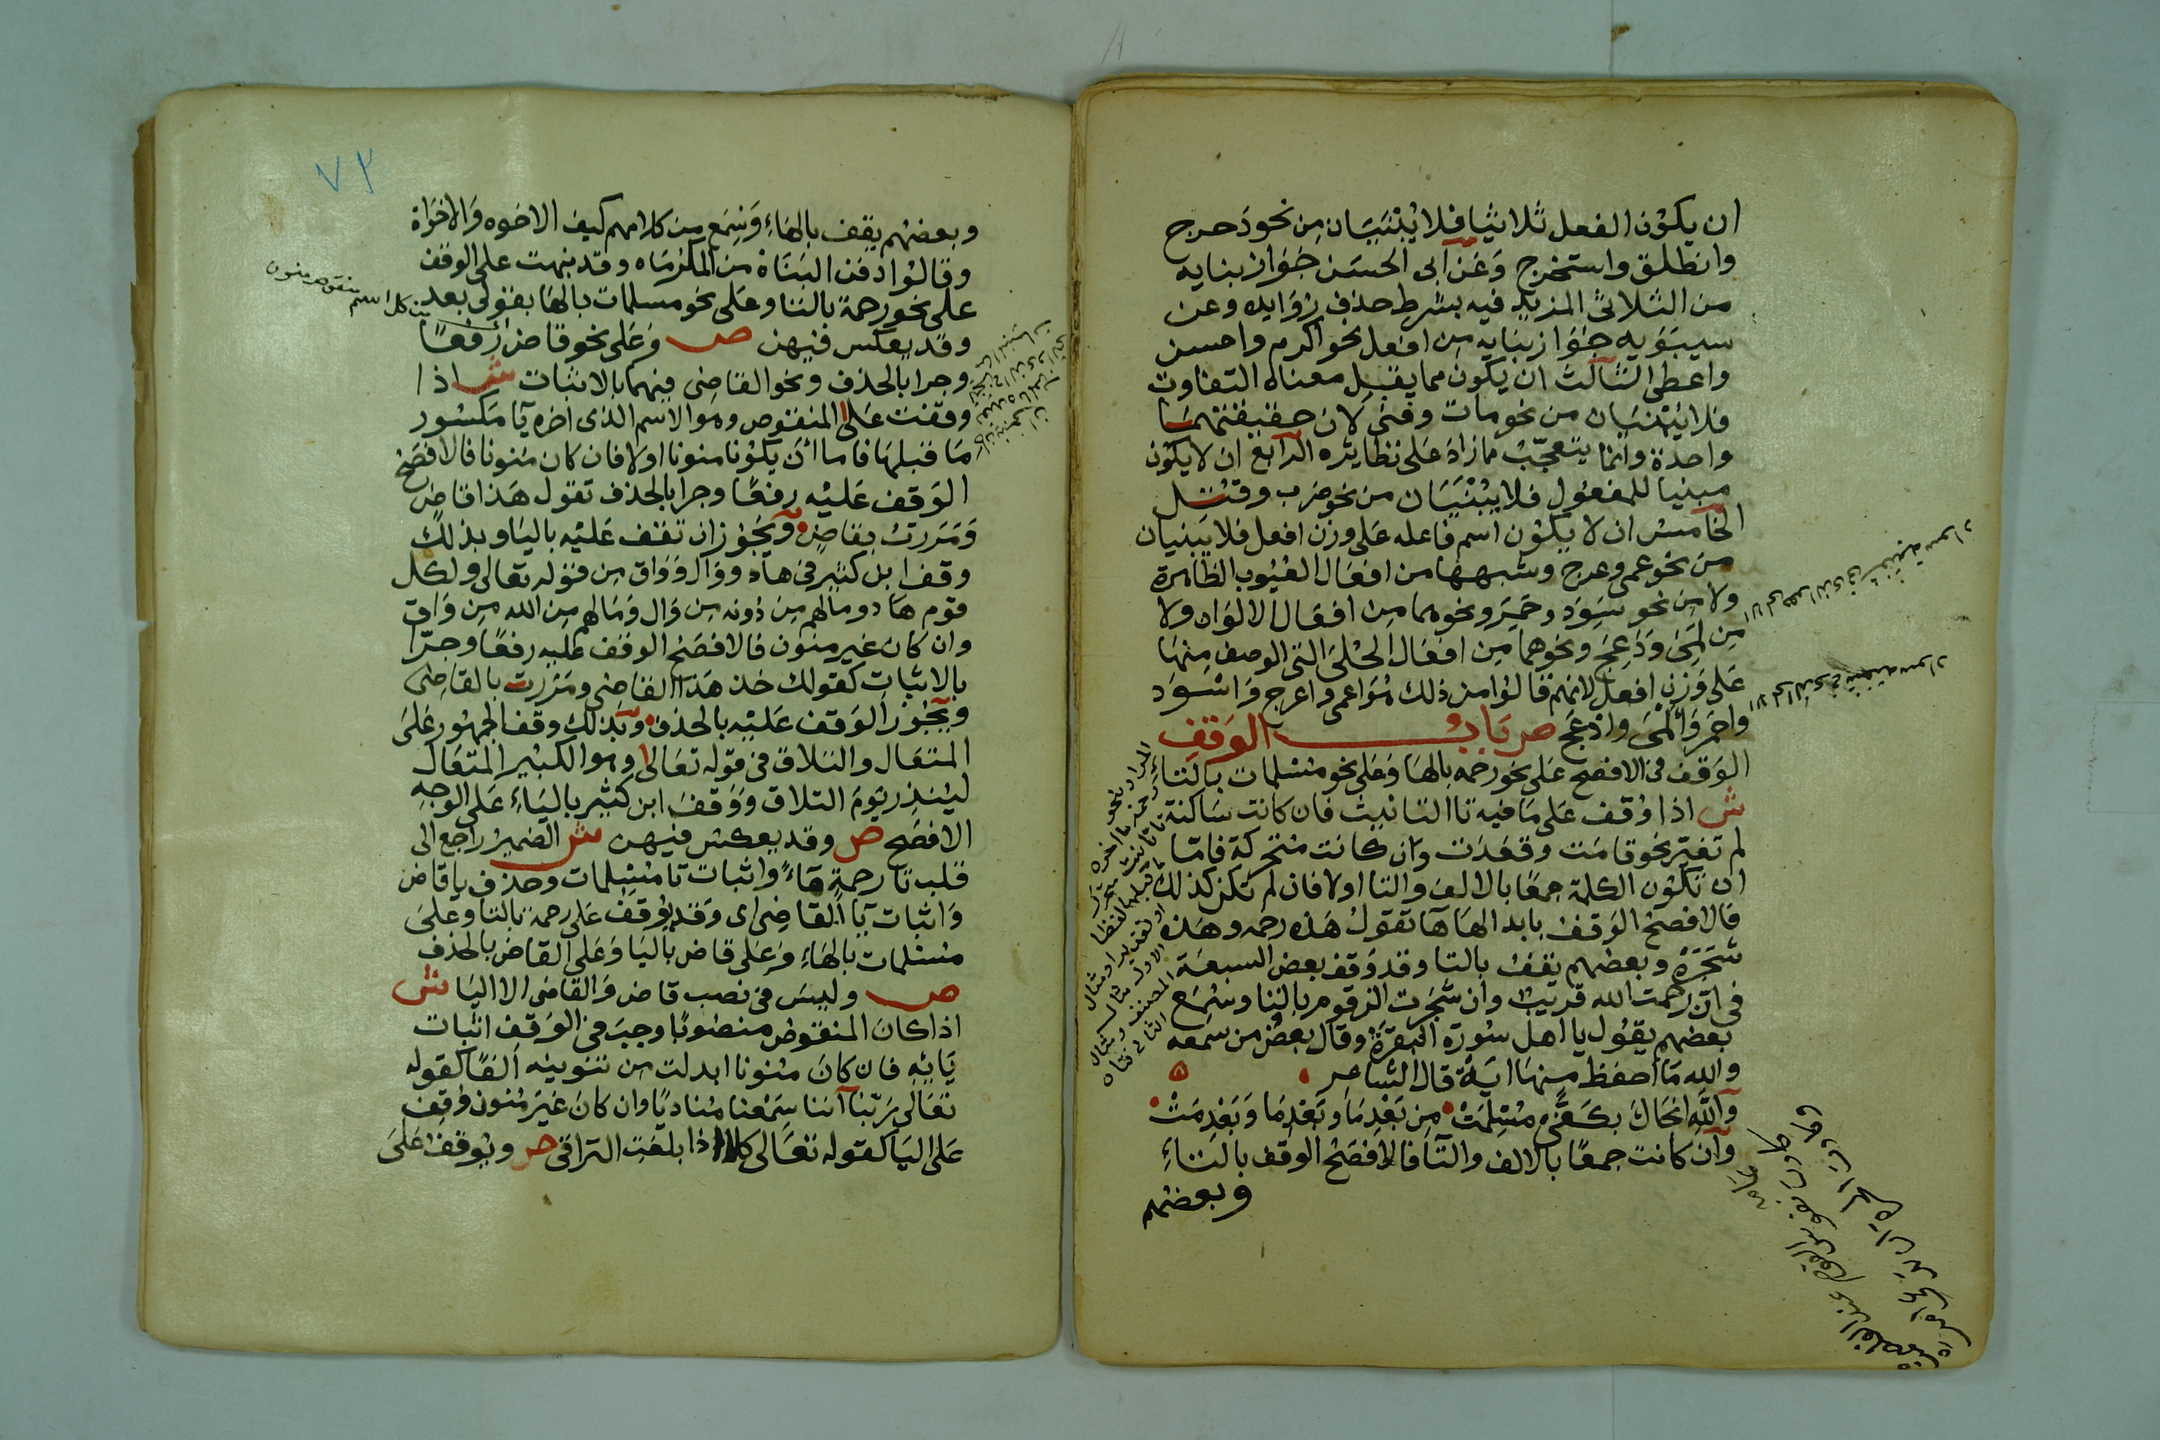 ان يكون الفعل ثلاثيا فلا يبنيان من نحو دحرج
وانطلق واستخرج وعن ابى الحسن جواز بنايه
من الثلاثي المزيد فيه بشرط حذف زوايده وعن
سيبويه جواز بنايه من افعل نحو اكرم واحسن
واعطى الثالث ان يكون مما يقبل معناه التفاوت
فلا يبنيان من نحو مات وفنى لان حقيقتهما
واحدة وانما يتعجب مما زاد على نظايره الرابع ان لا يكون
مبنيا للمفعول فلا يبنيان من نحو ضرب وقتل
الخامس ان لا يكون اسم فاعله على وزن افعل فلا يبنيان
من نحو عمى وعرج وشبههما من افعال العيوب الظاهرة
ولا من نحو سود وحمر ونحوهما من افعال الالوان ولا
من لمى ودعج ونحوهما من افعال الحلى التى الوصف منها
على وزن افعل لانهم قالوا من ذلك هو اعمى واعرج واسود
واحمر والمى وادعج ص باب الوقف
الوقف فى الافصح على نحو رحمه بالها وعلى نحو مسلمات بالتاء
ش اذا وقف على ما فيه تا التانيث فان كانت ساكنة
لم تغير نحو قامت وقعدت وان كانت متحركة فاما
ان تكون الكلمة جمعا بالالف والتا اولا فان لم تكن كذلك
فالافصح الوقف بابدالها ها تقول هذه رحمه وهذه
شجره وبعضهم يقف بالتا وقد وقف بعض السبعة
فى ان رحمت الله قريب وان شجرت الزقوم بالتا وسمع
بعضهم يقول يا اهل سورة البقرة وقال بعض من سمعه
والله ما احفظ منها اية قال الشاعر
والله انجاك بكفى مسلمت من بعدما وبعدما وبعدمت
وان كانت جمعا بالالف والتا فالافصح الوقف بالتاء
وبعضهم
المراد بنحو
رحمة ما اخره
تا تانيث
الاول مثال
المصنف ومثال
الثانى فتاه
٧٢
وبعضهم يقف بالهاء وسمع من كلامهم كيف الاخوه والاخواة
وقالوا دفن البناة من المكرماه وقد نبهت على الوقف
على نحو رحمة بالتا وعلى نحو مسلمات بالها بقولى بعد
وقد يعكس فيهن ص وعلى نحو قاض رفعا
وجرا بالحذف ونحو القاضى فيهما بالاثبات ش اذا
وقفت على المنقوص وهو الاسم الذى اخره يا مكسور
ما قبلها فاما ان يكون منونا اولا فان كان منونا فالافصح
الوقف عليه رفعا وجرا بالحذف تقول هذا قاض
ومررت بقاض ويجوز ان تقف عليه باليا وبذلك
وقف ابن كثير فى هاد ووال وواق من قوله تعالى ولكل
قوم هاد وما لهم من دونه من وال وما لهم من الله من واق
وان كان غير منون فالافصح الوقف عليه رفعا وجرا
بالاثبات كقولك هذا القاضى ومررت بالقاضى
ويجوز الوقف عليه بالحذف وبذلك وقف الجمهور على
المتعال والتلاق فى قوله تعالى وهو الكبير المتعال
لينذر يوم التلاق ووقف ابن كثير بالياء على الوجه
الافصح ص وقد يعكس فيهن ش الضمير راجع الى
قلب تا رحمة هاء واثبات تا مسلمات وحذف يا قاض
واثبات يا القاضى اى وقد يوقف على رحمة بالتا وعلى
مسلمات بالهاء وعلى قاض باليا وعلى القاض بالحذف
ص وليس فى نصب قاض والقاضى الا اليا ش
اذا كان المنقوص منصوبا وجب فى الوقف اثبات
يائه فان كان منونا ابدلت من تنوينه الفا كقوله
تعالى ربنا اننا سمعنا مناديا وان كان غير منون وقف
على اليا كقوله تعالى كلا اذا بلغت التراقى ص ويوقف على
من كل اسم منقوص منون